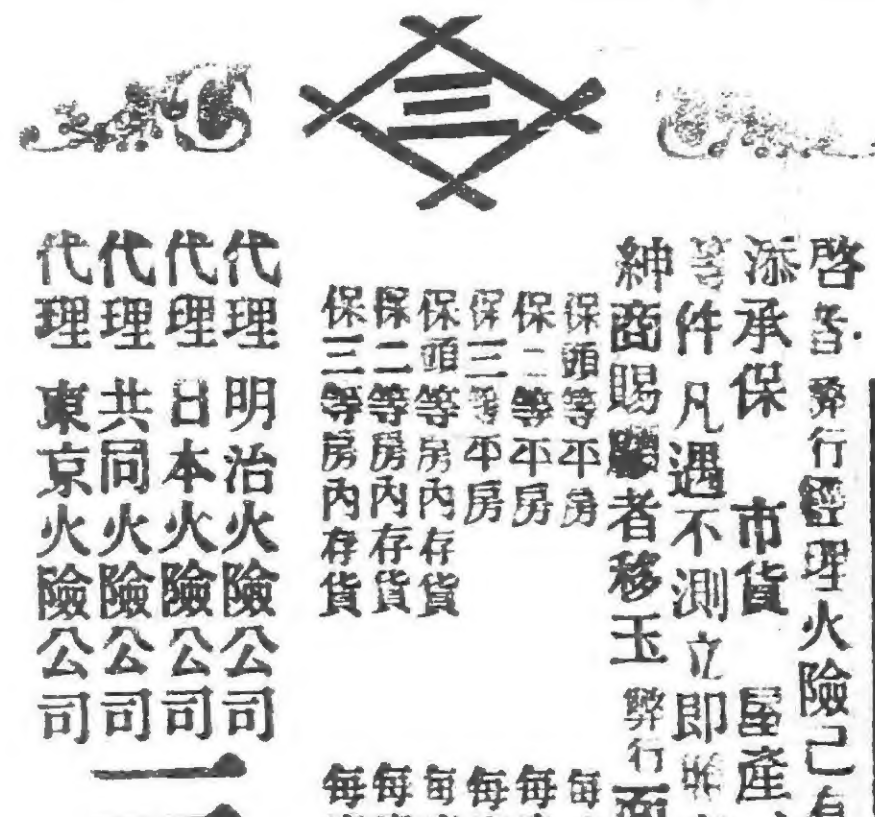 啓者弊行經理火險已有
添承保 市貨 屋產
等件凡遇不測立即賠
紳商賜顧者移玉 弊行面
保頭等平房 每
保二等平房 每
保三等平房 每
保頭等房內存貨 每
保二等房內存貨 每
保三等房內存貨 每
代理 明治火險公司
代理 日本火險公司
代理 共同火險公司
代理 東京火險公司